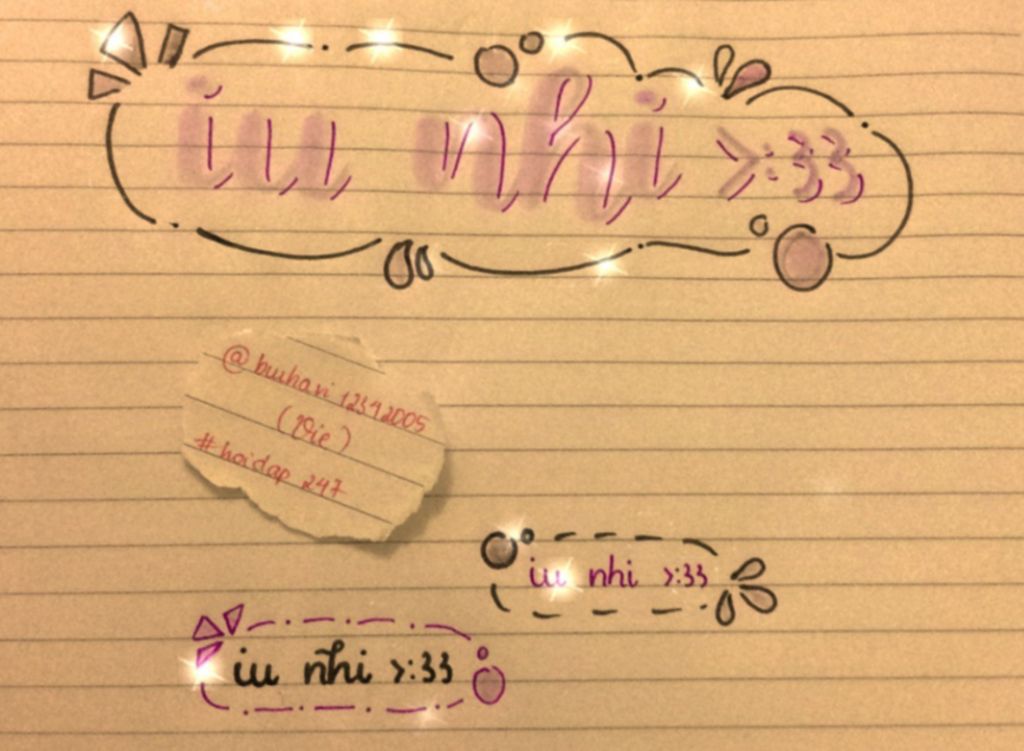 iu nhi >:33
@buihavi12342005
(Vie)
#hoidap 247
iu nhi >:33
iu nhi >:33